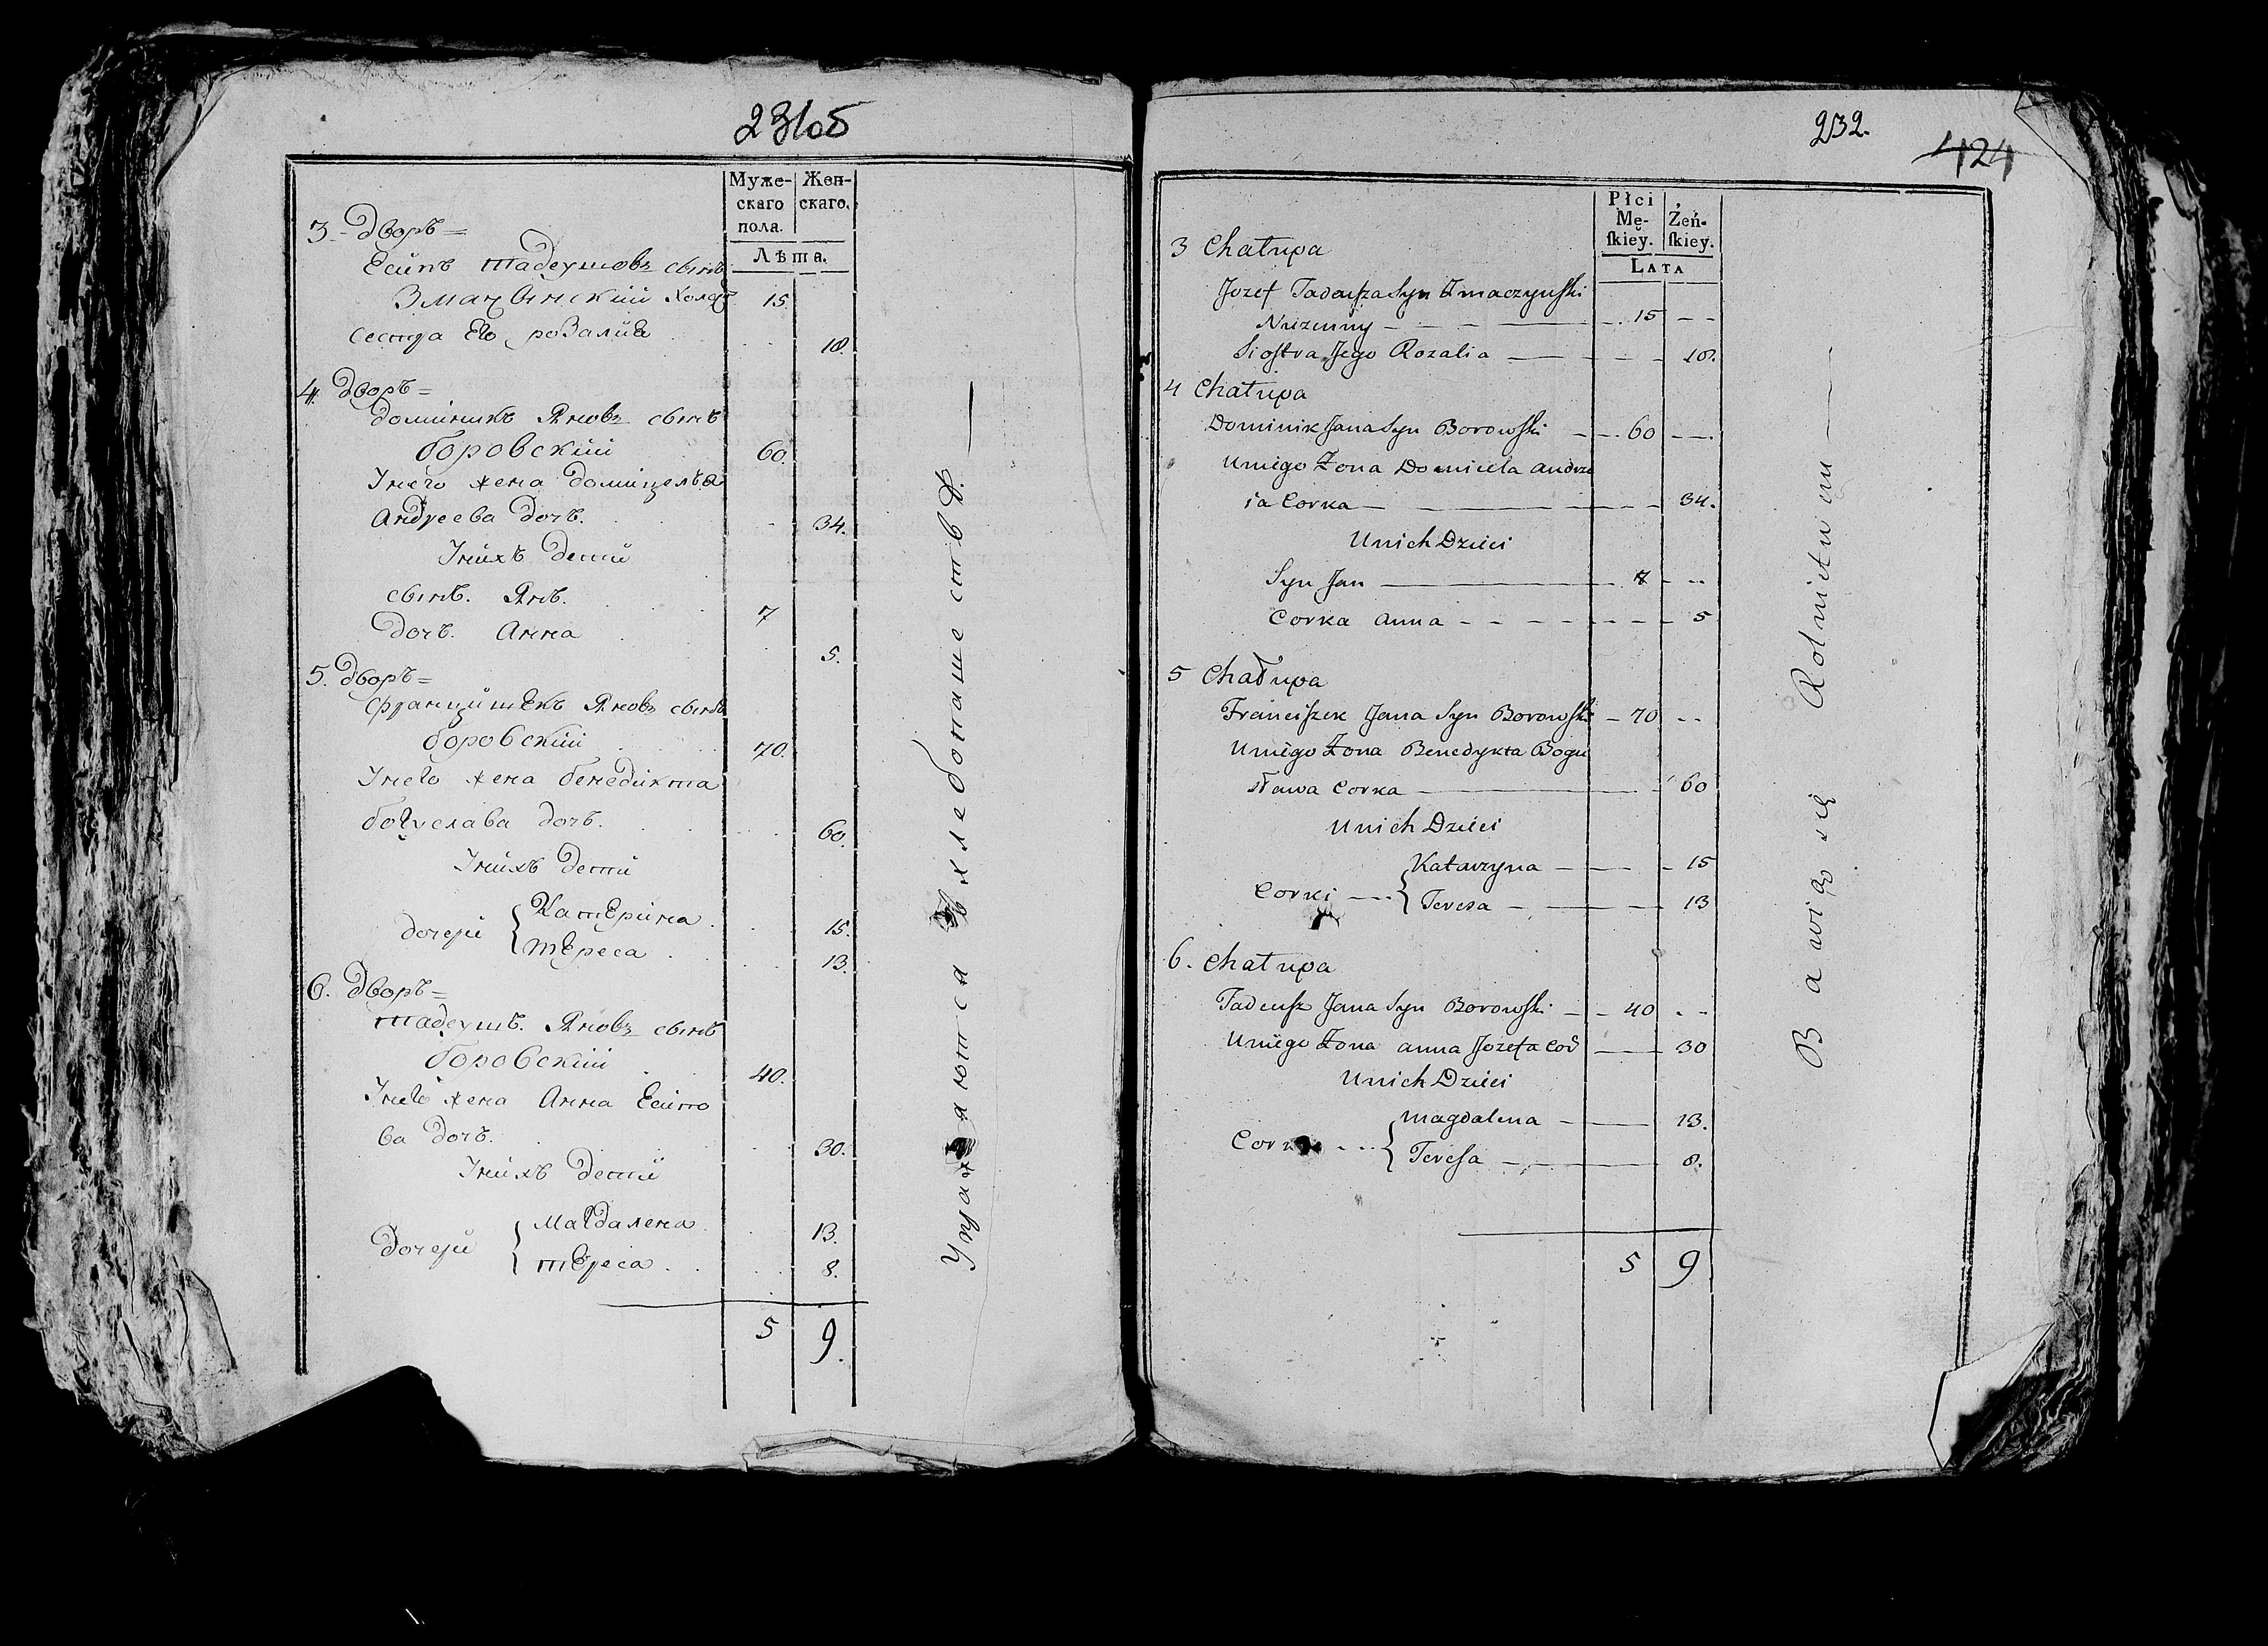 231об
Муже- Жен-
скаго скаго.
пола.
Лѣта.
3 - Дворъ =
Есипъ Тадеушовъ сынъ
Змачинскій Холос 15.
Сестра Его розалия 18.
4. Дворъ =
Доминикъ Яновъ сынъ
боровский 60.
Унего жена Домицеля
Андреева дочъ. 34.
Унихъ дети
сынъ. Янъ. 7
дочъ. Анна 5.
5. Дворъ =
Францишекъ Яновъ сынъ
боровский 70.
Унего жена бенедикта
богуслава дочъ. 60.
Унихъ дети
дочери { Катерина 15.
тереса 13.
6. Дворъ =
Тадеушъ. Яновъ сынъ
боровский 40.
Унего жена Анна Есипо
ва дочъ. 30.
Унихъ дети
дочери { Магдалена 13.
тереса 8.
5 9.
Упражняются в хлебопашестве.
232.
424
Płci
Mę- Żeń-
skiey. skiey.
LATA
3 Chałupa
Jozef Tadeusza Syn Zmaczyński
Niezenny 15
Siostra Jego Rozalia 18.
4 Chałupa
Dominik Jana Syn Borowski 60
Uniego Zona Domicela Andrze
ia Corka 34.
Unich Dzieci
Syn Jan 7
Corka Anna 5
5 Chałupa
Franciszek Jana Syn Borowski 70
Uniego Zona Benedykta Bogu
sława Corka 60
Unich Dzieci
Corki { Katarzyna 15
Teresa 13
6. Chałupa
Tadeusz Jana Syn Borowski 40
Uniego Zona Anna Jozefa Cor 30
Unich Dzieci
Corki { Magdalena 13.
Teresa 8.
5 9
Bawią się Rolnitwem